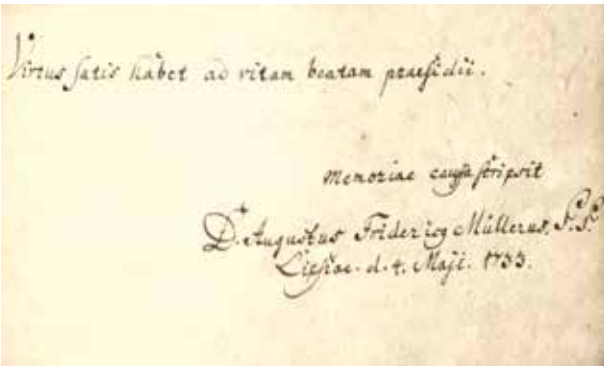 Virtus satis habet ad vitam beatam praesidii.
Memoriae causa scripsit
D. Augustus Fridericq Müllerus, P. P.
Lipsiae. d. 4. Maji. 1733.